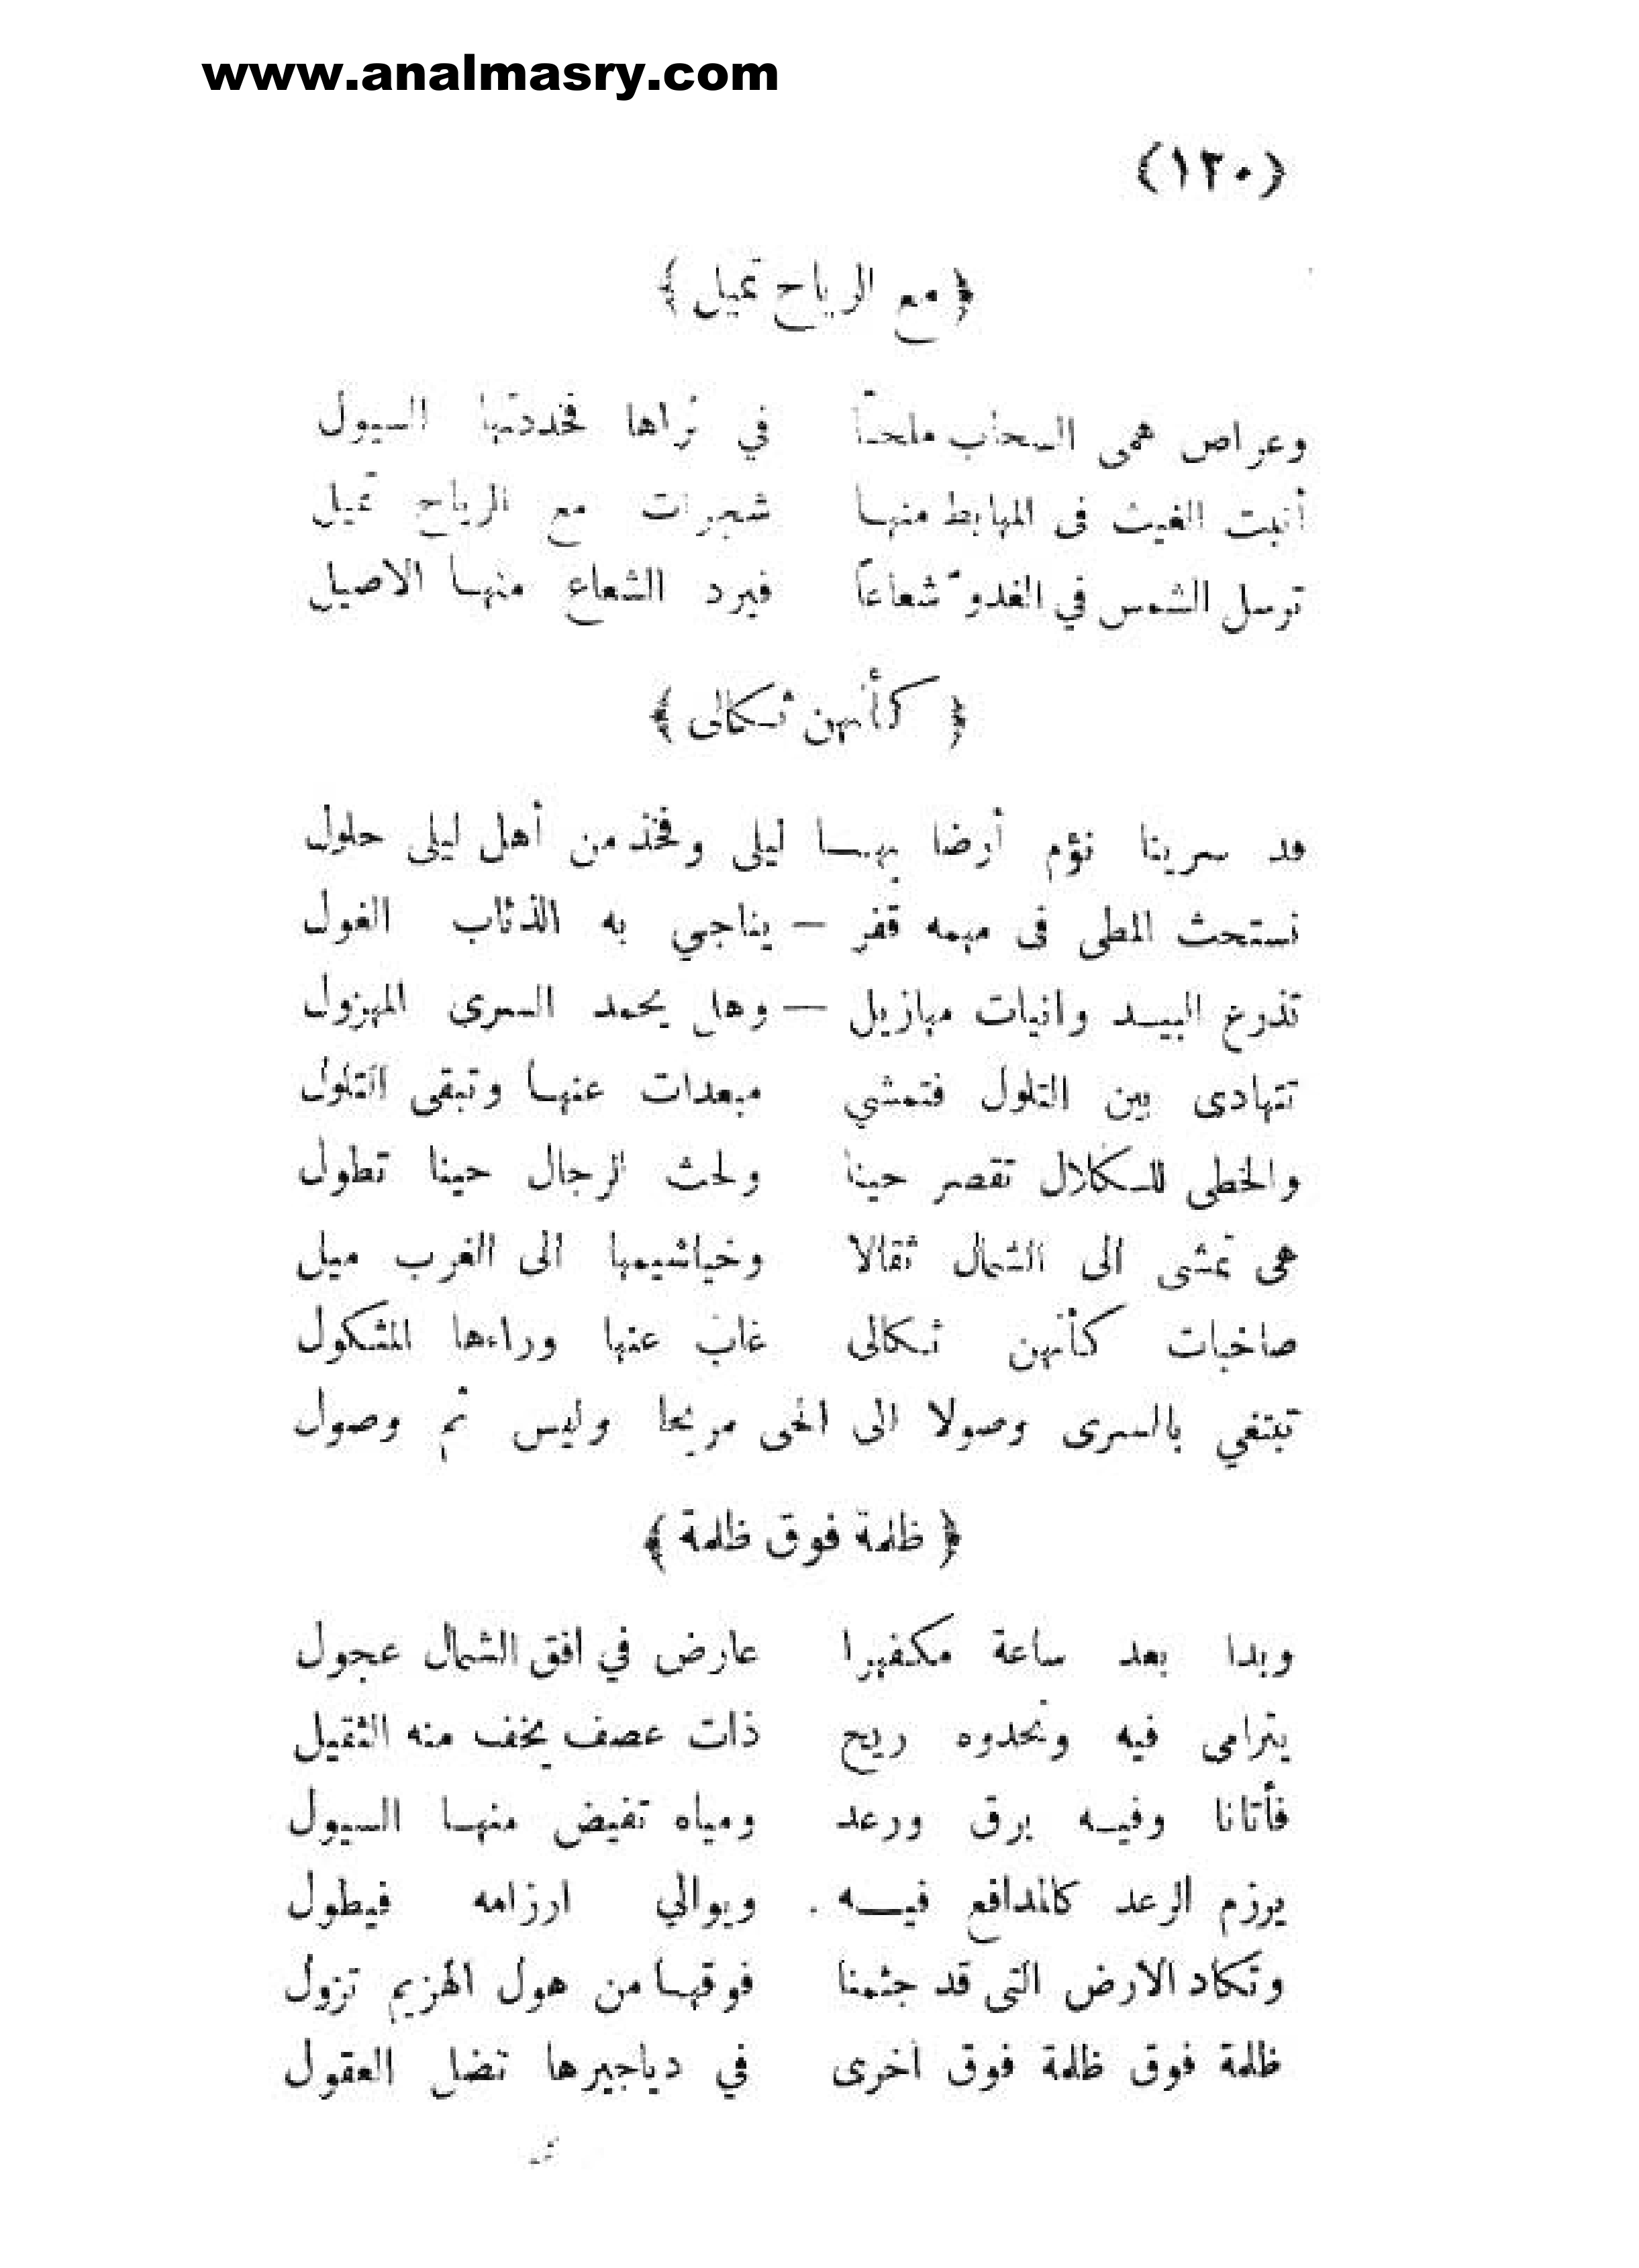 www.analmasry.com
(١٢٠)
﴿ مع الرياح تميل ﴾
وعراص همى السحاب ملحـاً في ثراها فخددتها السيول
أنبت الغيث فى المهابط منهـا شجيرات مع الرياح تميل
ترسل الشمس في الغدوّ شعاعاً فيرد الشعاع منهـا الاصيل
﴿ كأنهن ثـكالى ﴾
قد سرينا نؤم أرضا بهـا ليلى وفخذ من أهل ليلى حلول
نستحث المطى فى مهمه قفر — يناجي به الذئاب الغول
تذرع البيـد وانيات مهازيل — وهل يحمد السرى المهزول
تتهادى بين التلول فتمشي مبعدات عنهـا وتبقى التلول
والخطى للـكلال تقصر حينا ولحث الرجال حينا تطول
هى تمشى الى الشمال ثقالا وخياشيمها الى الغرب ميل
صاخبات كأنهن ثـكالى غاب عنها وراءها المثكول
تبتغي بالسرى وصولا الى الحى مريحا وليس ثم وصول
﴿ ظلمة فوق ظلمة ﴾
وبدا بعد ساعة مكفهرا عارض في افق الشمال عجول
يترامى فيه وتحدوه ريح ذات عصف يخف منه الثقيل
فأتانا وفيـه برق ورعد ومياه تفيض منهـا السيول
يرزم الرعد كالمدافع فيـه ويوالي ارزامه فيطول
وتكاد الارض التى قد جثمنا فوقهـا من هول الهزيم تزول
ظلمة فوق ظلمة فوق اخرى في دياجيرها تضل العقول